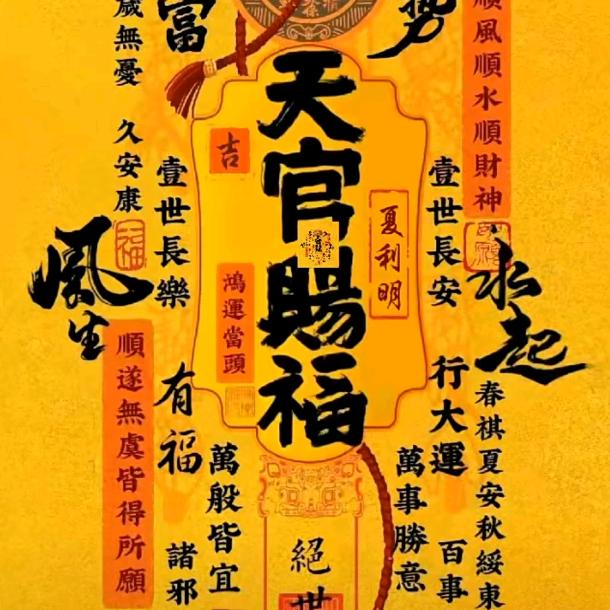 勢
順風順水順財神
富
歲無憂
久安康
天官賜福
吉
夏利明
鴻運當頭
壹世長安
壹世長樂
水起
風生
行大運
春祺夏安秋綏東
順遂無虞皆得所願
有福
萬事勝意
萬般皆宜
百事
諸邪
絕世